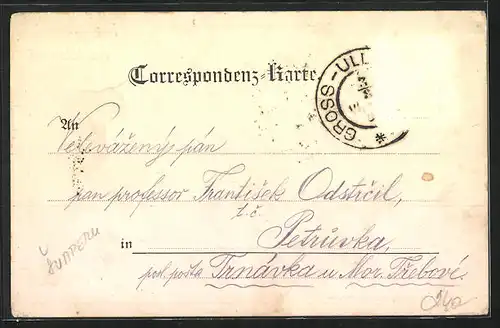 Correspondenz-Karte.
GROSS-ULL
An
Velevážený pán
pan professor František Odstrčil,
t. č.
in Petrůvka,
posl. pošta Trnávka u Mor. Třebové.